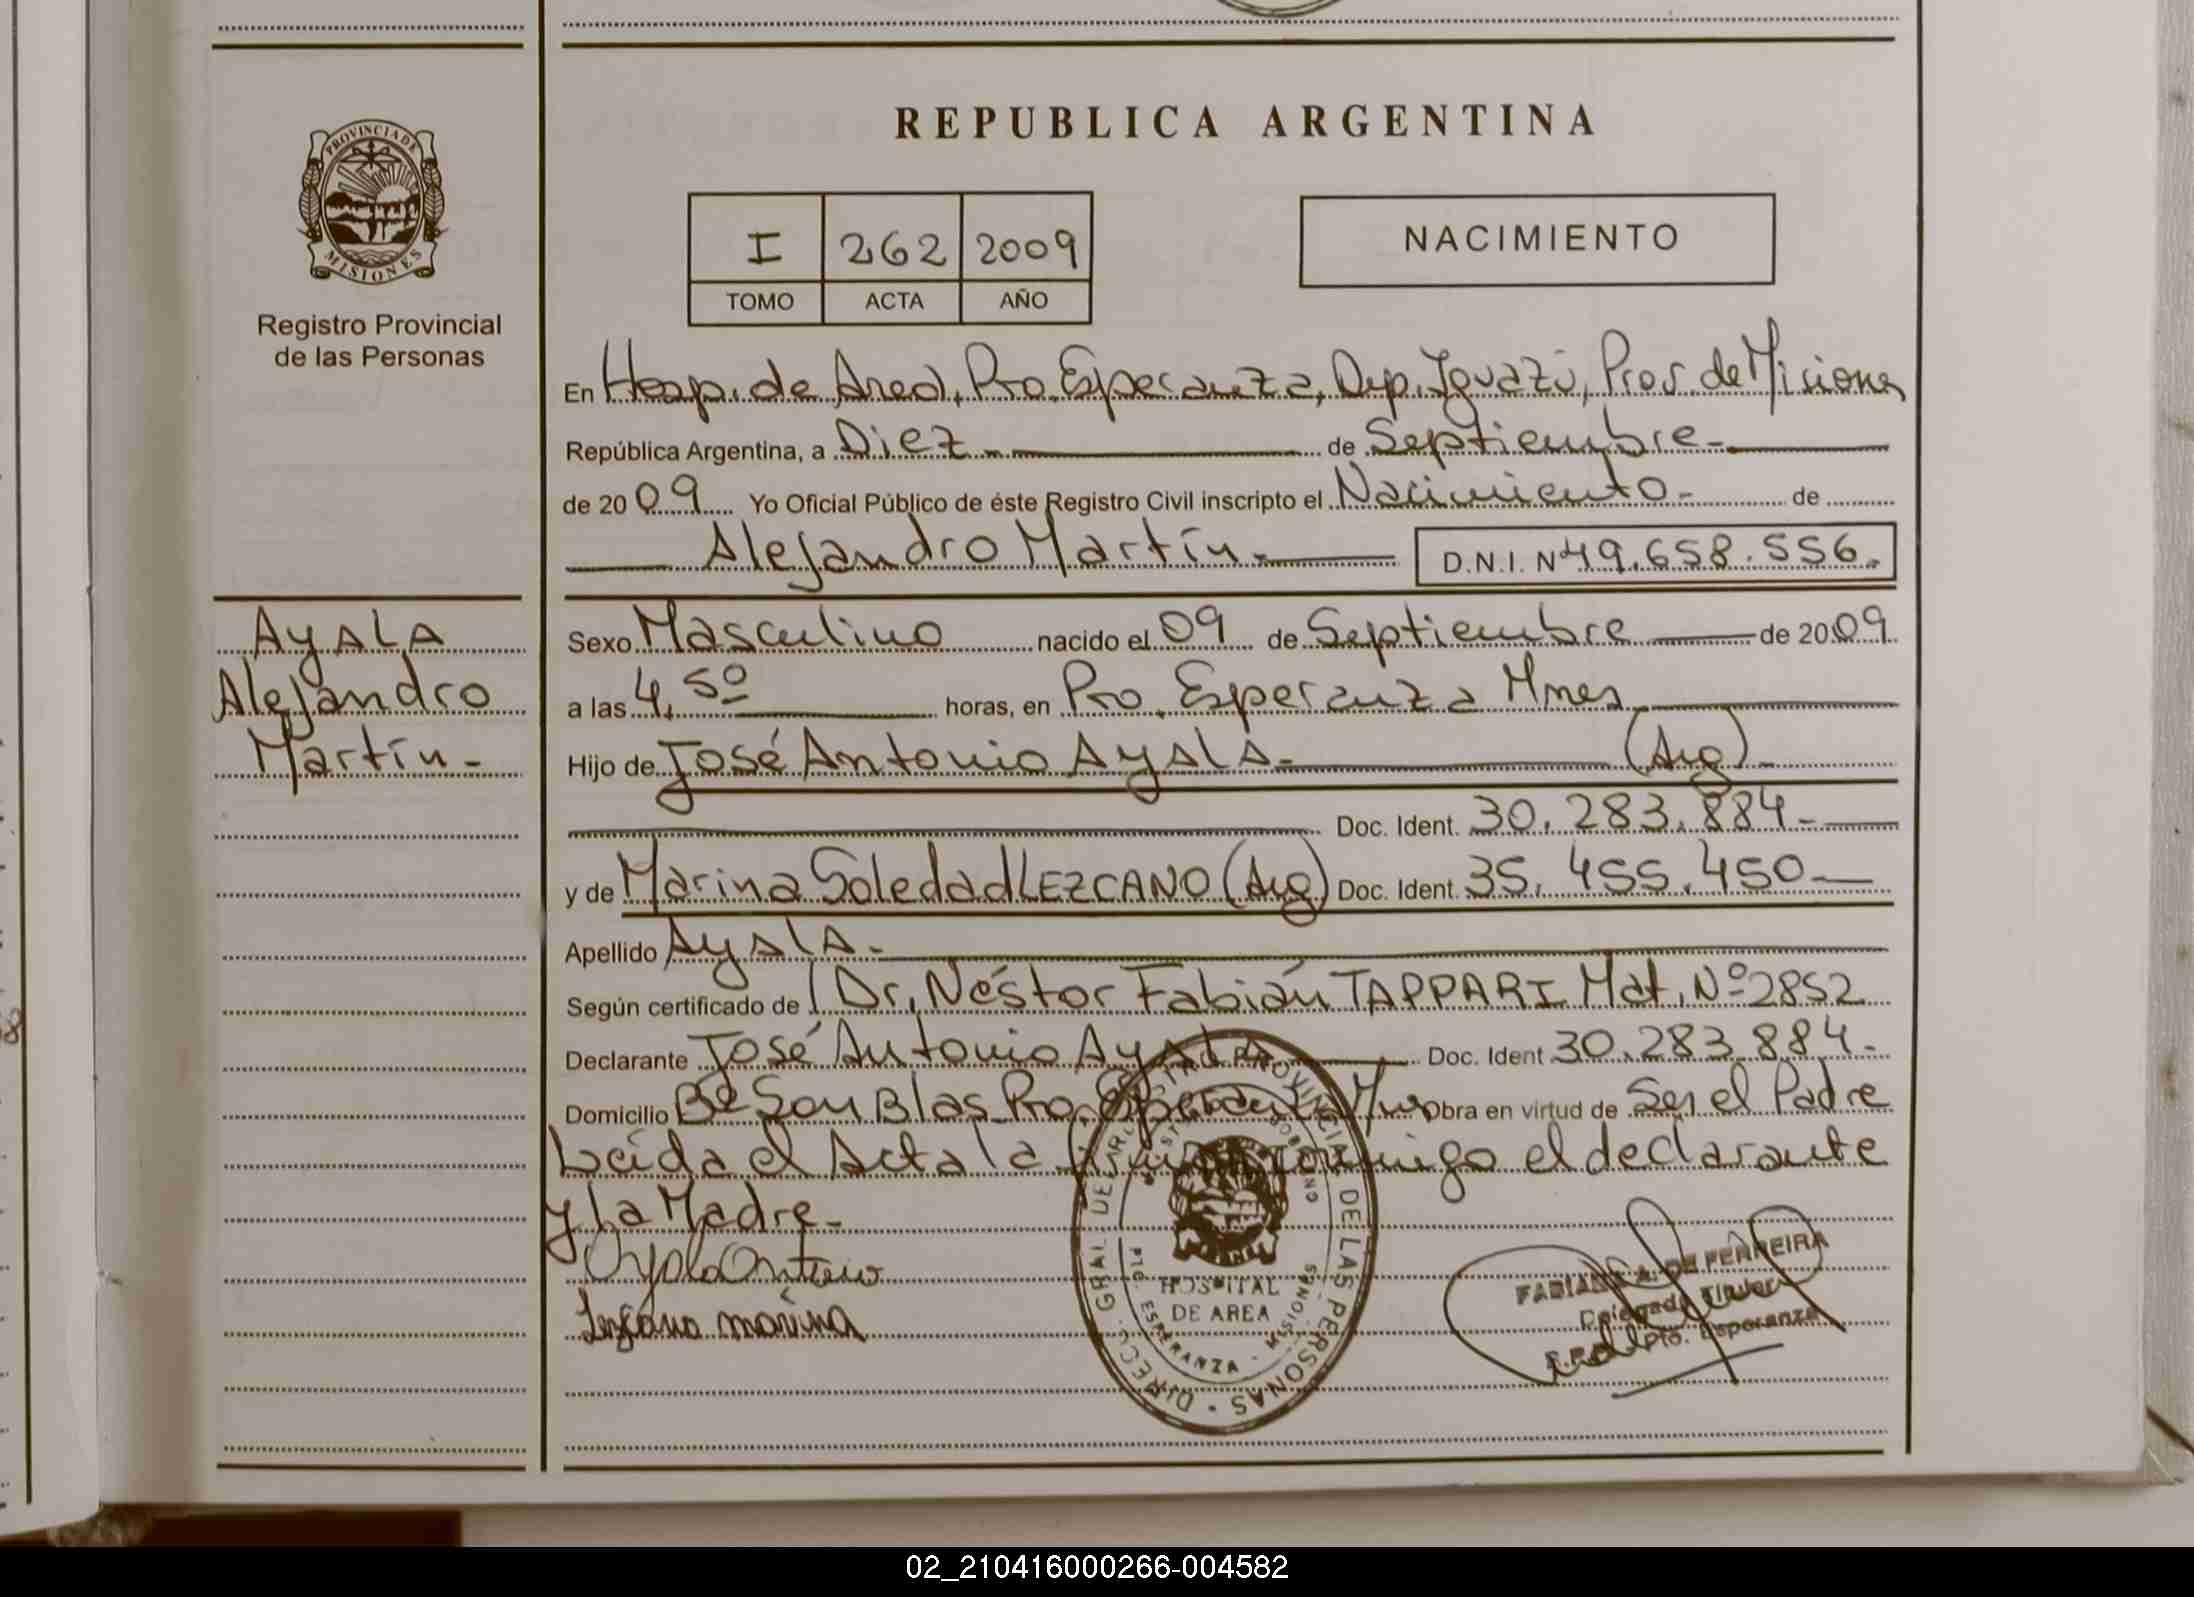 REPUBLICA ARGENTINA
PROVINCIA DE MISIONES
Registro Provincial
de las Personas
I 262 2009
TOMO ACTA AÑO
NACIMIENTO
En Hosp. de Area, Pto. Esperanza, Dep. Iguazú, Prov. de Misiones
República Argentina, a Diez de Septiembre
de 2009 Yo Oficial Público de éste Registro Civil inscripto el Nacimiento de
Alejandro Martín D.N.I. Nº 49.658.556.
Ayala
Alejandro
Martín
Sexo Masculino nacido el 09 de Septiembre de 2009
a las 4,50 horas, en Pto. Esperanza Mnes
Hijo de José Antonio Ayala (Arg)
Doc. Ident. 30.283.884
y de Marina Soledad LEZCANO (Arg) Doc. Ident. 35.455.450
Apellido Ayala
Según certificado de Dr. Néstor Fabián TAPPARI Mat. Nº 2852
Declarante José Antonio Ayala Doc. Ident 30.283.884
Domicilio Bº San Blas Pto. Esperanza Mnes Obra en virtud de Ser el Padre
Leída el Acta la conmigo el declarante
y La Madre
Ayala Antonio
Lezcano marina
DIRECC. GRAL. DE PROVINCIAL DE LAS PERSONAS
HOSPITAL
DE AREA
PTO. ESPERANZA - MISIONES
DE FERREIRA
Pto. Esperanza
02_210416000266-004582